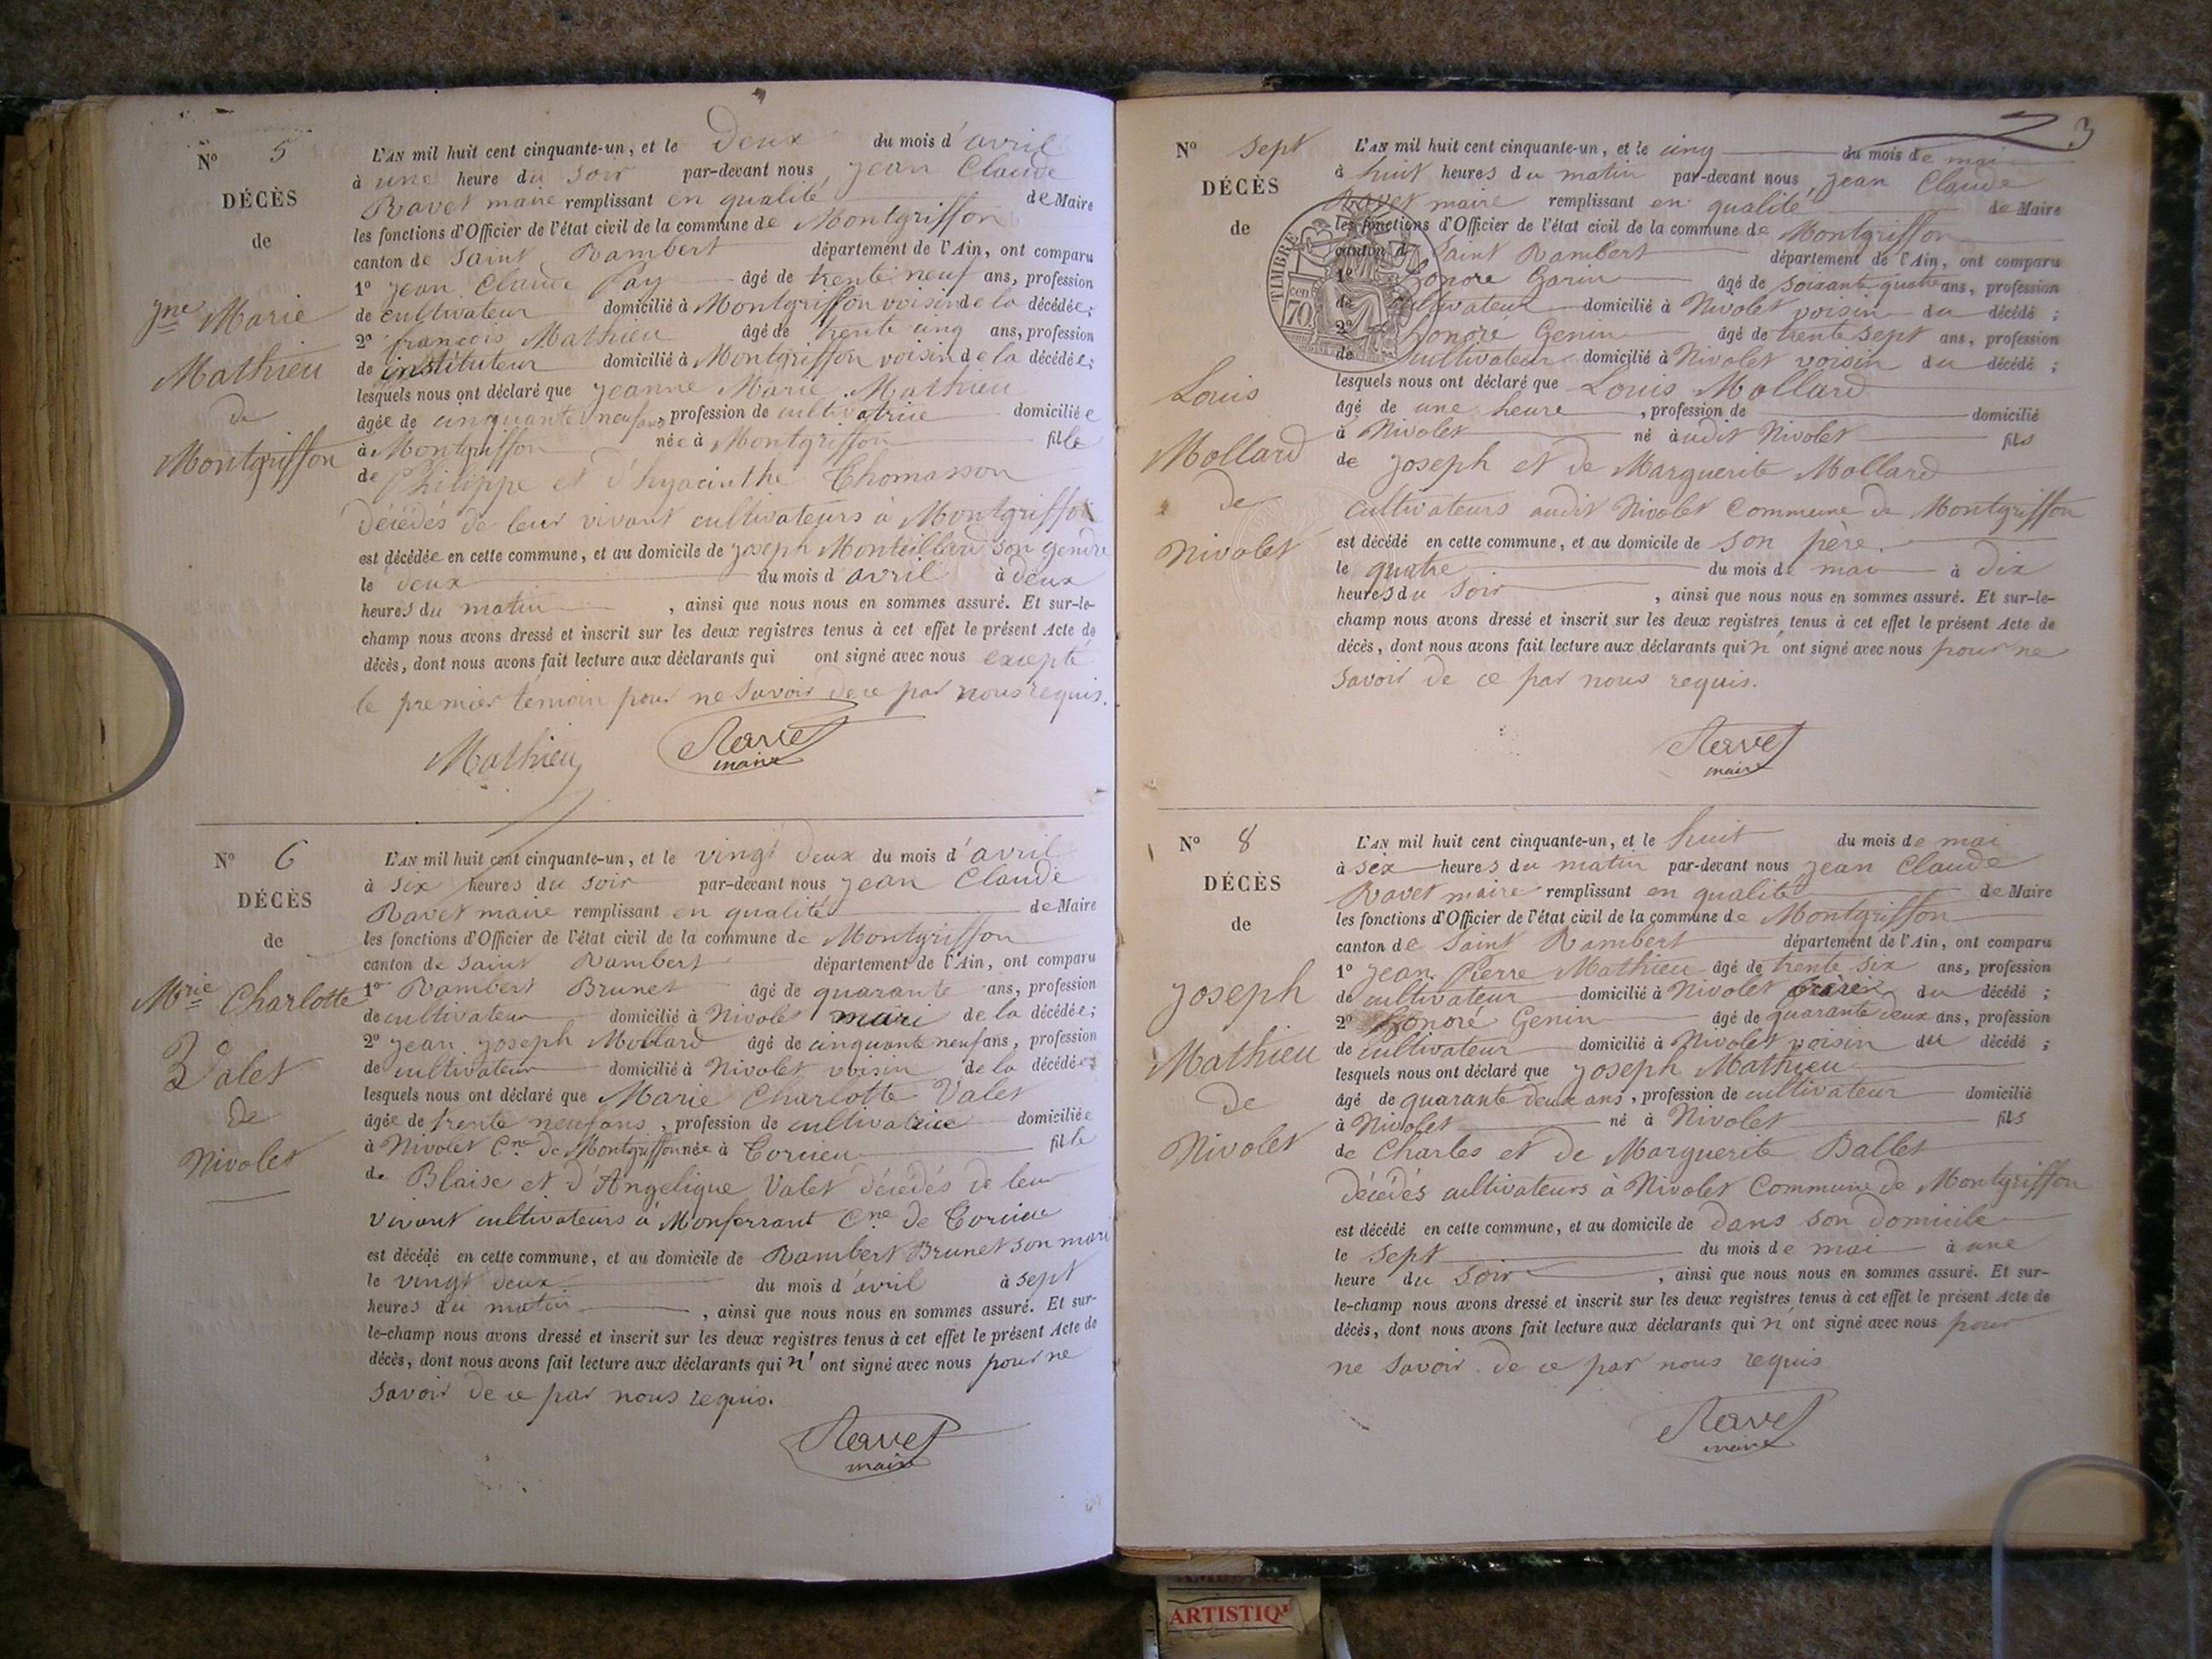 N° 5
DÉCÈS
de
Jne Marie
Mathieu
de
Montgriffon
L'AN mil huit cent cinquante-un, et le Deux du mois d'avril
à une heure du soir par-devant nous, Jean Claude
Ravet maire remplissant en qualité de Maire
les fonctions d'Officier de l'état civil de la commune de Montgriffon
canton de Saint Rambert département de l'Ain, ont comparu
1° Jean Claude Pay âgé de trente neuf ans, profession
de cultivateur domicilié à Montgriffon voisin de la décédée;
2° françois Mathieu âgé de trente cinq ans, profession
de instituteur domicilié à Montgriffon voisin de la décédée;
lesquels nous ont déclaré que Jeanne Marie Mathieu
âgée de cinquante neuf ans, profession de cultivatrice domiciliée
à Montgriffon née à Montgriffon fille
de Philippe et d'hyacinthe Thomasson
décédés de leur vivant cultivateurs à Montgriffon
est décédée en cette commune, et au domicile de Joseph Monteillard son gendre
le deux du mois d'avril à deux
heures du matin, ainsi que nous nous en sommes assuré. Et sur-le-
champ nous avons dressé et inscrit sur les deux registres tenus à cet effet le présent Acte de
décès, dont nous avons fait lecture aux déclarants qui ont signé avec nous excepté
le premier témoin pour ne savoir de ce par nous requis.
Mathieu Ravet
maire
N° 6
DÉCÈS
de
Mrie Charlotte
Valet
de
Nivolet
L'AN mil huit cent cinquante-un, et le vingt deux du mois d'avril
à six heures du soir par-devant nous Jean Claude
Ravet maire remplissant en qualité de Maire
les fonctions d'Officier de l'état civil de la commune de Montgriffon
canton de Saint Rambert département de l'Ain, ont comparu
1° Rambert Brunet âgé de quarante ans, profession
de cultivateur domicilié à Nivolet mari de la décédée;
2° Jean Joseph Mollard âgé de cinquante neuf ans, profession
de cultivateur domicilié à Nivolet voisin de la décédée;
lesquels nous ont déclaré que Marie Charlotte Valet
âgée de trente neuf ans, profession de cultivatrice domiciliée
à Nivolet Cne de Montgriffon née à Torcieu fille
de Blaise et d'Angelique Valet décédés de leur
vivant cultivateurs à Monferrant Cne de Torcieu
est décédé en cette commune, et au domicile de Rambert Brunet son mari
le vingt deux du mois d'avril à sept
heures du matin, ainsi que nous nous en sommes assuré. Et sur-
le-champ nous avons dressé et inscrit sur les deux registres tenus à cet effet le présent Acte de
décès, dont nous avons fait lecture aux déclarants qui n'ont signé avec nous pour ne
savoir de ce par nous requis.
Ravet
maire
3
N° Sept
DÉCÈS
de
Louis
Mollard
de
Nivolet
L'AN mil huit cent cinquante-un, et le cinq du mois de mai
à huit heures du matin par-devant nous, Jean Claude
Ravet maire remplissant en qualité de Maire
les fonctions d'Officier de l'état civil de la commune de Montgriffon
canton d Saint Rambert département de l'Ain, ont comparu
1° honoré Garin âgé de soixante quatre ans, profession
de cultivateur domicilié à Nivolet voisin du décédé;
2° honoré Genin âgé de trente sept ans, profession
de cultivateur domicilié à Nivolet voisin du décédé;
TIMBRE
cen
70
lesquels nous ont déclaré que Louis Mollard
âgé de une heure, profession de domicilié
à Nivolet né audit Nivolet fils
de Joseph et de Marguerite Mollard
cultivateurs audit Nivolet Commune de Montgriffon
est décédé en cette commune, et au domicile de son père.
le quatre du mois de mai à dix
heures du soir, ainsi que nous nous en sommes assuré. Et sur-le-
champ nous avons dressé et inscrit sur les deux registres tenus à cet effet le présent Acte de
décès, dont nous avons fait lecture aux déclarants qui n'ont signé avec nous pour ne
savoir de ce par nous requis.
Ravet
maire
N° 8
DÉCÈS
de
Joseph
Mathieu
de
Nivolet
L'AN mil huit cent cinquante-un, et le huit du mois de mai
à six heures du matin par-devant nous Jean Claude
Ravet maire remplissant en qualité de Maire
les fonctions d'Officier de l'état civil de la commune de Montgriffon
canton de Saint Rambert département de l'Ain, ont comparu
1° Jean Pierre Mathieu âgé de trente six ans, profession
de cultivateur domicilié à Nivolet frère du décédé;
2° honoré Genin âgé de quarante deux ans, profession
de cultivateur domicilié à Nivolet voisin du décédé;
lesquels nous ont déclaré que Joseph Mathieu
âgé de quarante deux ans, profession de cultivateur domicilié
à Nivolet né à Nivolet fils
de Charles et de Marguerite Ballet
décédés cultivateurs à Nivolet Commune de Montgriffon
est décédé en cette commune, et au domicile de dans son domicile
le sept du mois de mai à une
heure du soir, ainsi que nous nous en sommes assuré. Et sur-
le-champ nous avons dressé et inscrit sur les deux registres tenus à cet effet le présent Acte de
décès, dont nous avons fait lecture aux déclarants qui n'ont signé avec nous pour
ne savoir de ce par nous requis
Ravet
maire
ARTISTIQ